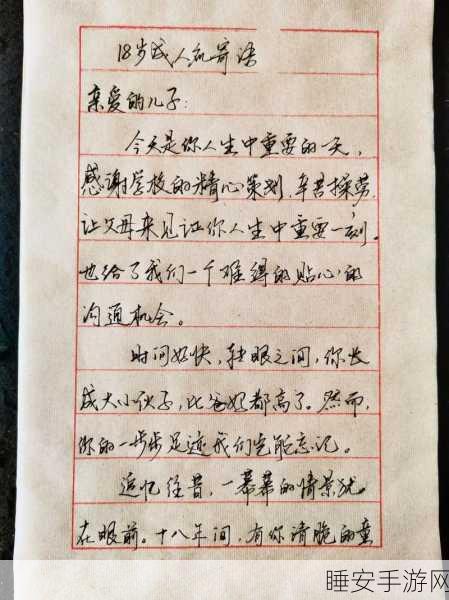 18岁成人礼寄语
亲爱的儿子:
今天是你人生中重要的一天,
感谢学校的精心策划、辛苦操劳,
让父母来见证你人生中重要一刻,
也给了我们一个难得的贴心的
沟通机会。
时间好快,转眼之间,你长
成大小伙子,比爸妈都高了。然而,
你的一步步足迹我们岂能忘记。
追忆往昔,一幕幕的情景犹
在眼前。十八年间,有你清脆的童
睡安手游网